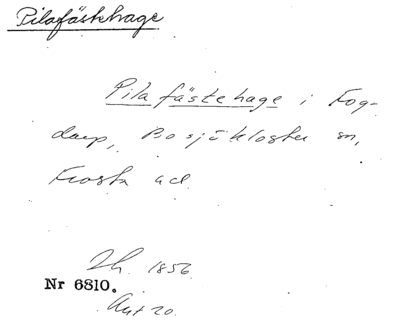 Pilafästehage
Pila fästehage i Fog-
darp, Bosjökloster sn,
Frosta hd
Lh. 1856.
Nr 6810.
Akt 20.